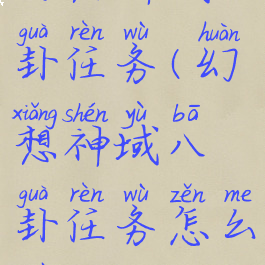 guà rèn wù huàn
卦任务(幻
xiǎng shén yù bā
想神域八
guà rèn wù zěn me
卦任务怎么